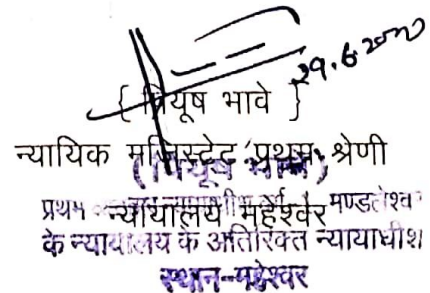 29.6.2000
{ पियूष भावे }
न्यायिक मजिस्ट्रेट प्रथम श्रेणी
(पियूष भावे)
न्यायालय महेश्वर
प्रथम मण्डलेश्वर
के न्यायालय के अतिरिक्त न्यायाधीश
स्थान-महेश्वर